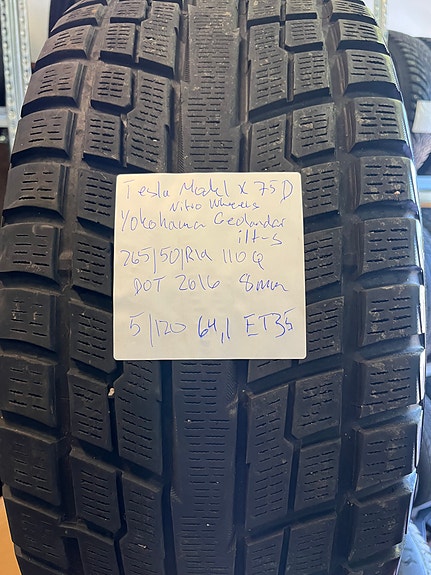 Tesla Model X 75D
Nitro Wheels
Yokohama Geolandar
i/t-s
265/50/R19 110Q
DOT 2016 8mm
5/120 64,1 ET35